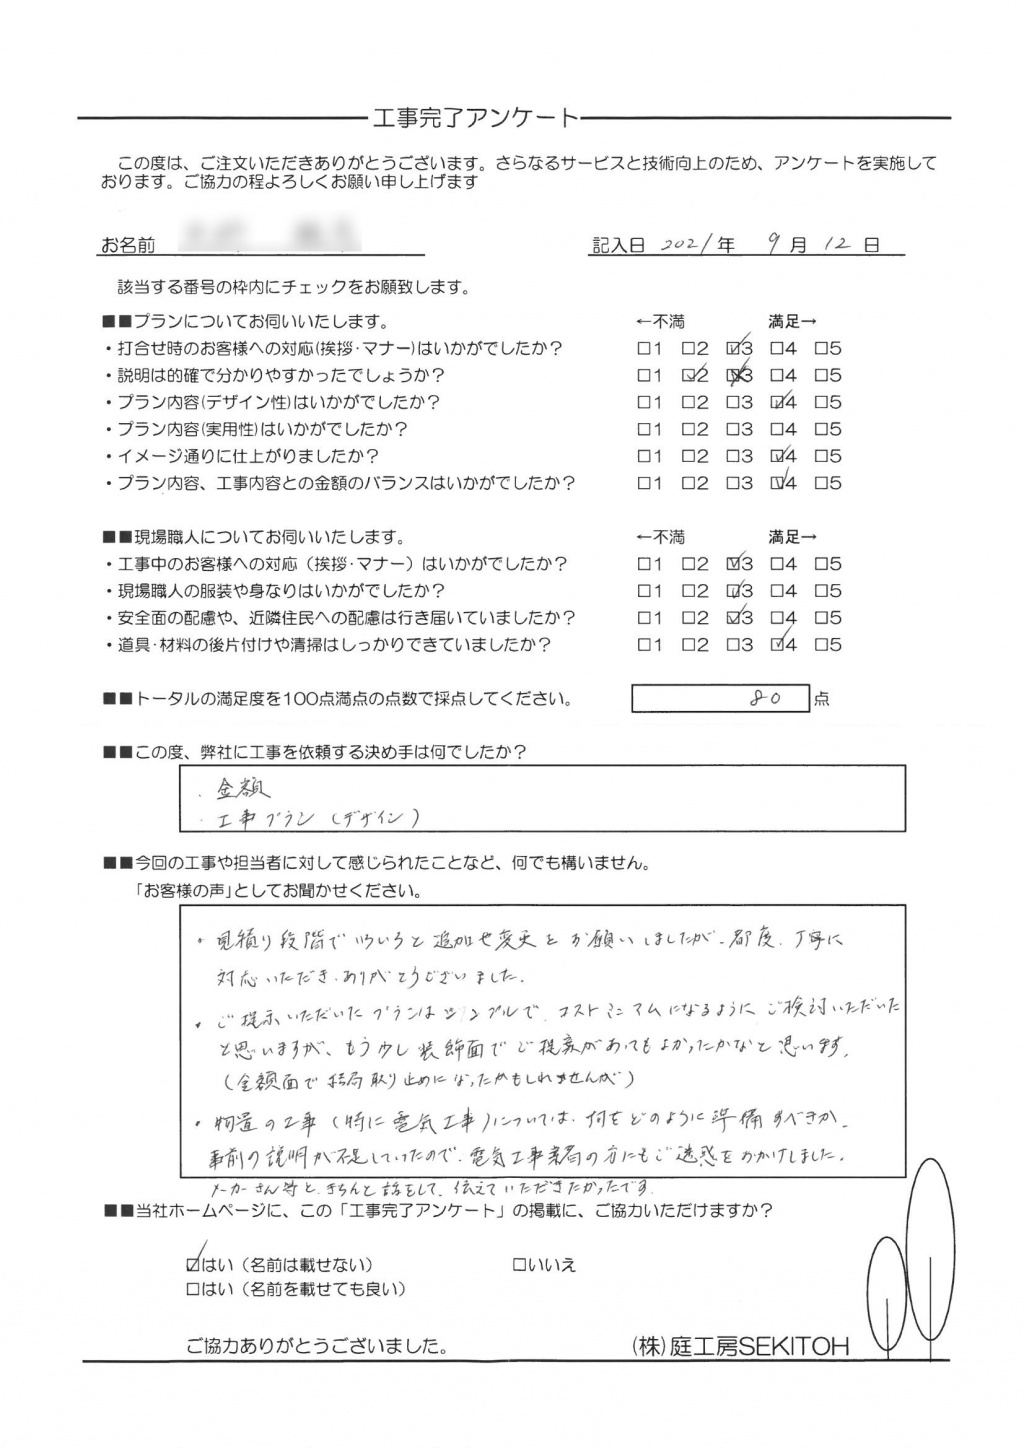 工事完了アンケート
この度は、ご注文いただきありがとうございます。さらなるサービスと技術向上のため、アンケートを実施して
おります。ご協力の程よろしくお願い申し上げます
お名前
記入日 2021年 9月 12日
該当する番号の枠内にチェックをお願致します。
■■プランについてお伺いいたします。 ←不満 満足→
・打合せ時のお客様への対応(挨拶・マナー)はいかがでしたか? □1 □2 ☑3 □4 □5
・説明は的確で分かりやすかったでしょうか? □1 ☑2 ☒3 □4 □5
・プラン内容(デザイン性)はいかがでしたか? □1 □2 □3 ☑4 □5
・プラン内容(実用性)はいかがでしたか? □1 □2 □3 □4 □5
・イメージ通りに仕上がりましたか? □1 □2 □3 ☑4 □5
・プラン内容、工事内容との金額のバランスはいかがでしたか? □1 □2 □3 ☑4 □5
■■現場職人についてお伺いいたします。 ←不満 満足→
・工事中のお客様への対応（挨拶・マナー）はいかがでしたか? □1 □2 ☑3 □4 □5
・現場職人の服装や身なりはいかがでしたか? □1 □2 ☑3 □4 □5
・安全面の配慮や、近隣住民への配慮は行き届いていましたか? □1 □2 ☑3 □4 □5
・道具・材料の後片付けや清掃はしっかりできていましたか? □1 □2 □3 ☑4 □5
■■トータルの満足度を100点満点の点数で採点してください。 80 点
■■この度、弊社に工事を依頼する決め手は何でしたか?
・金額
・工事プラン（デザイン）
■■今回の工事や担当者に対して感じられたことなど、何でも構いません。
「お客様の声」としてお聞かせください。
・見積り段階でいろいろと追加や変更をお願いしましたが、都度、丁寧に
対応いただき、ありがとうございました。
・ご提示いただいたプランはシンプルで、コストミニマムになるように、ご検討いただいた
と思いますが、もう少し装飾面でご提案があってもよかったかなと思います。
（金額面で結局取り止めになったかもしれませんが）
・物置の工事（特に電気工事）については、何をどのように準備すべきか、
事前の説明が不足していたので、電気工事業者の方にもご迷惑をおかけしました。
メーカーさん等と、きちんと話をして、伝えていただきたかったです。
■■当社ホームページに、この「工事完了アンケート」の掲載に、ご協力いただけますか?
☑はい（名前は載せない） □いいえ
□はい（名前を載せても良い）
ご協力ありがとうございました。 (株)庭工房SEKITOH